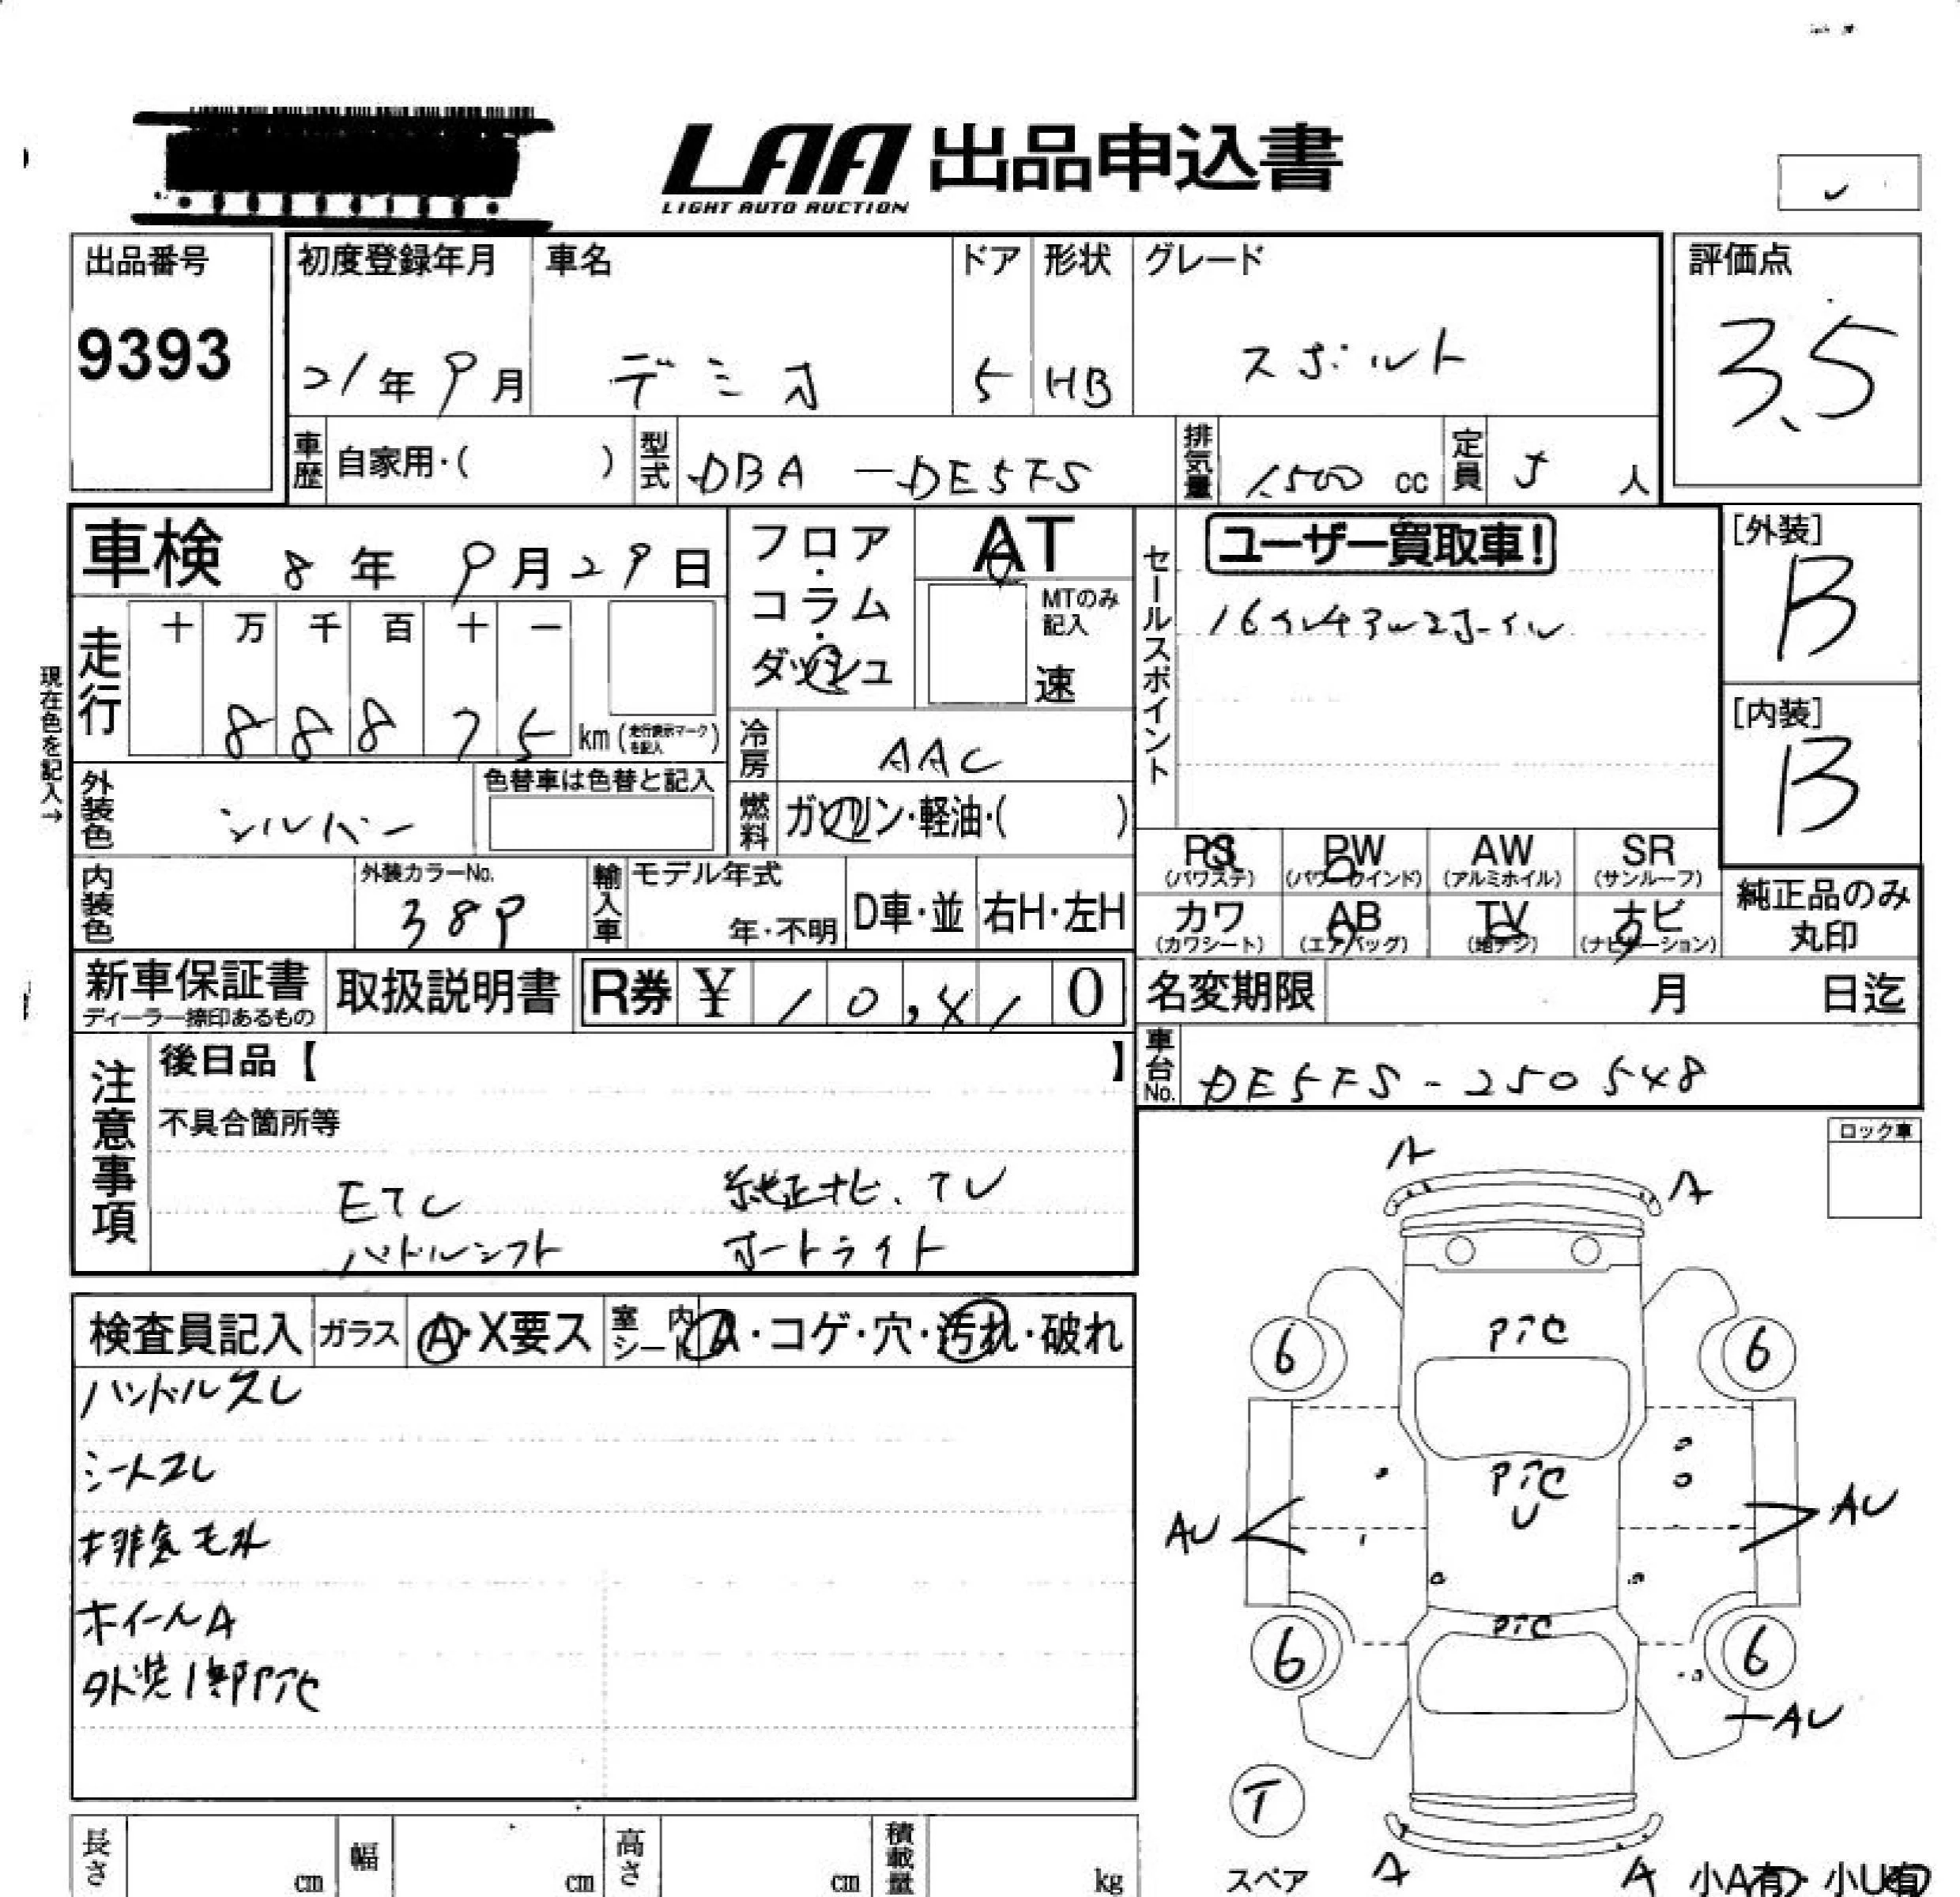 LAA 出品申込書
LIGHT AUTO AUCTION
出品番号
9393
初度登録年月
21年9月
車名
デミオ
ドア
5
形状
HB
グレード
スポルト
評価点
3.5
車歴 自家用・( )
型式 DBA-DE5FS
排気量 1,500 cc
定員 5 人
車検 8年9月29日
フロア・コラム・ダッシュ
AT
MTのみ記入
速
セールスポイント
ユーザー買取車!
16インチアルミホイル
[外装]
B
[内装]
B
現在色を記入→
走行
十 万 千 百 十 一
8 8 8 7 5 km (走行表示マークを記入)
冷房 AAC
外装色 シルバー
色替車は色替と記入
燃料 ガソリン・軽油・( )
PS (パワステ)
PW (パワーウインド)
AW (アルミホイル)
SR (サンルーフ)
内装色
外装カラーNo.
38P
輸入車
モデル年式
年・不明
D車・並
右H・左H
カワ (カワシート)
AB (エアバッグ)
TV (地デジ)
ナビ (ナビゲーション)
純正品のみ丸印
新車保証書
ディーラー捺印あるもの
取扱説明書
R券 ¥ 10,410
名変期限 月 日迄
車台No. DE5FS-250548
注意事項
後日品【 】
不具合箇所等
ETC 純正ナビ、TV
パドルシフト オートライト
ロック車
検査員記入
ガラス A・X要ス
室内シート A・コゲ・穴・汚れ・破れ
ハンドルスレ
シートスレ
排気モレ
ホイールA
外装1部PTC
A
A
PTC
6
6
PTC
U
AU
AU
PTC
6
6
AU
T
スペア
A
A
小A有・小U有
長さ cm
幅 cm
高さ cm
積載量 kg